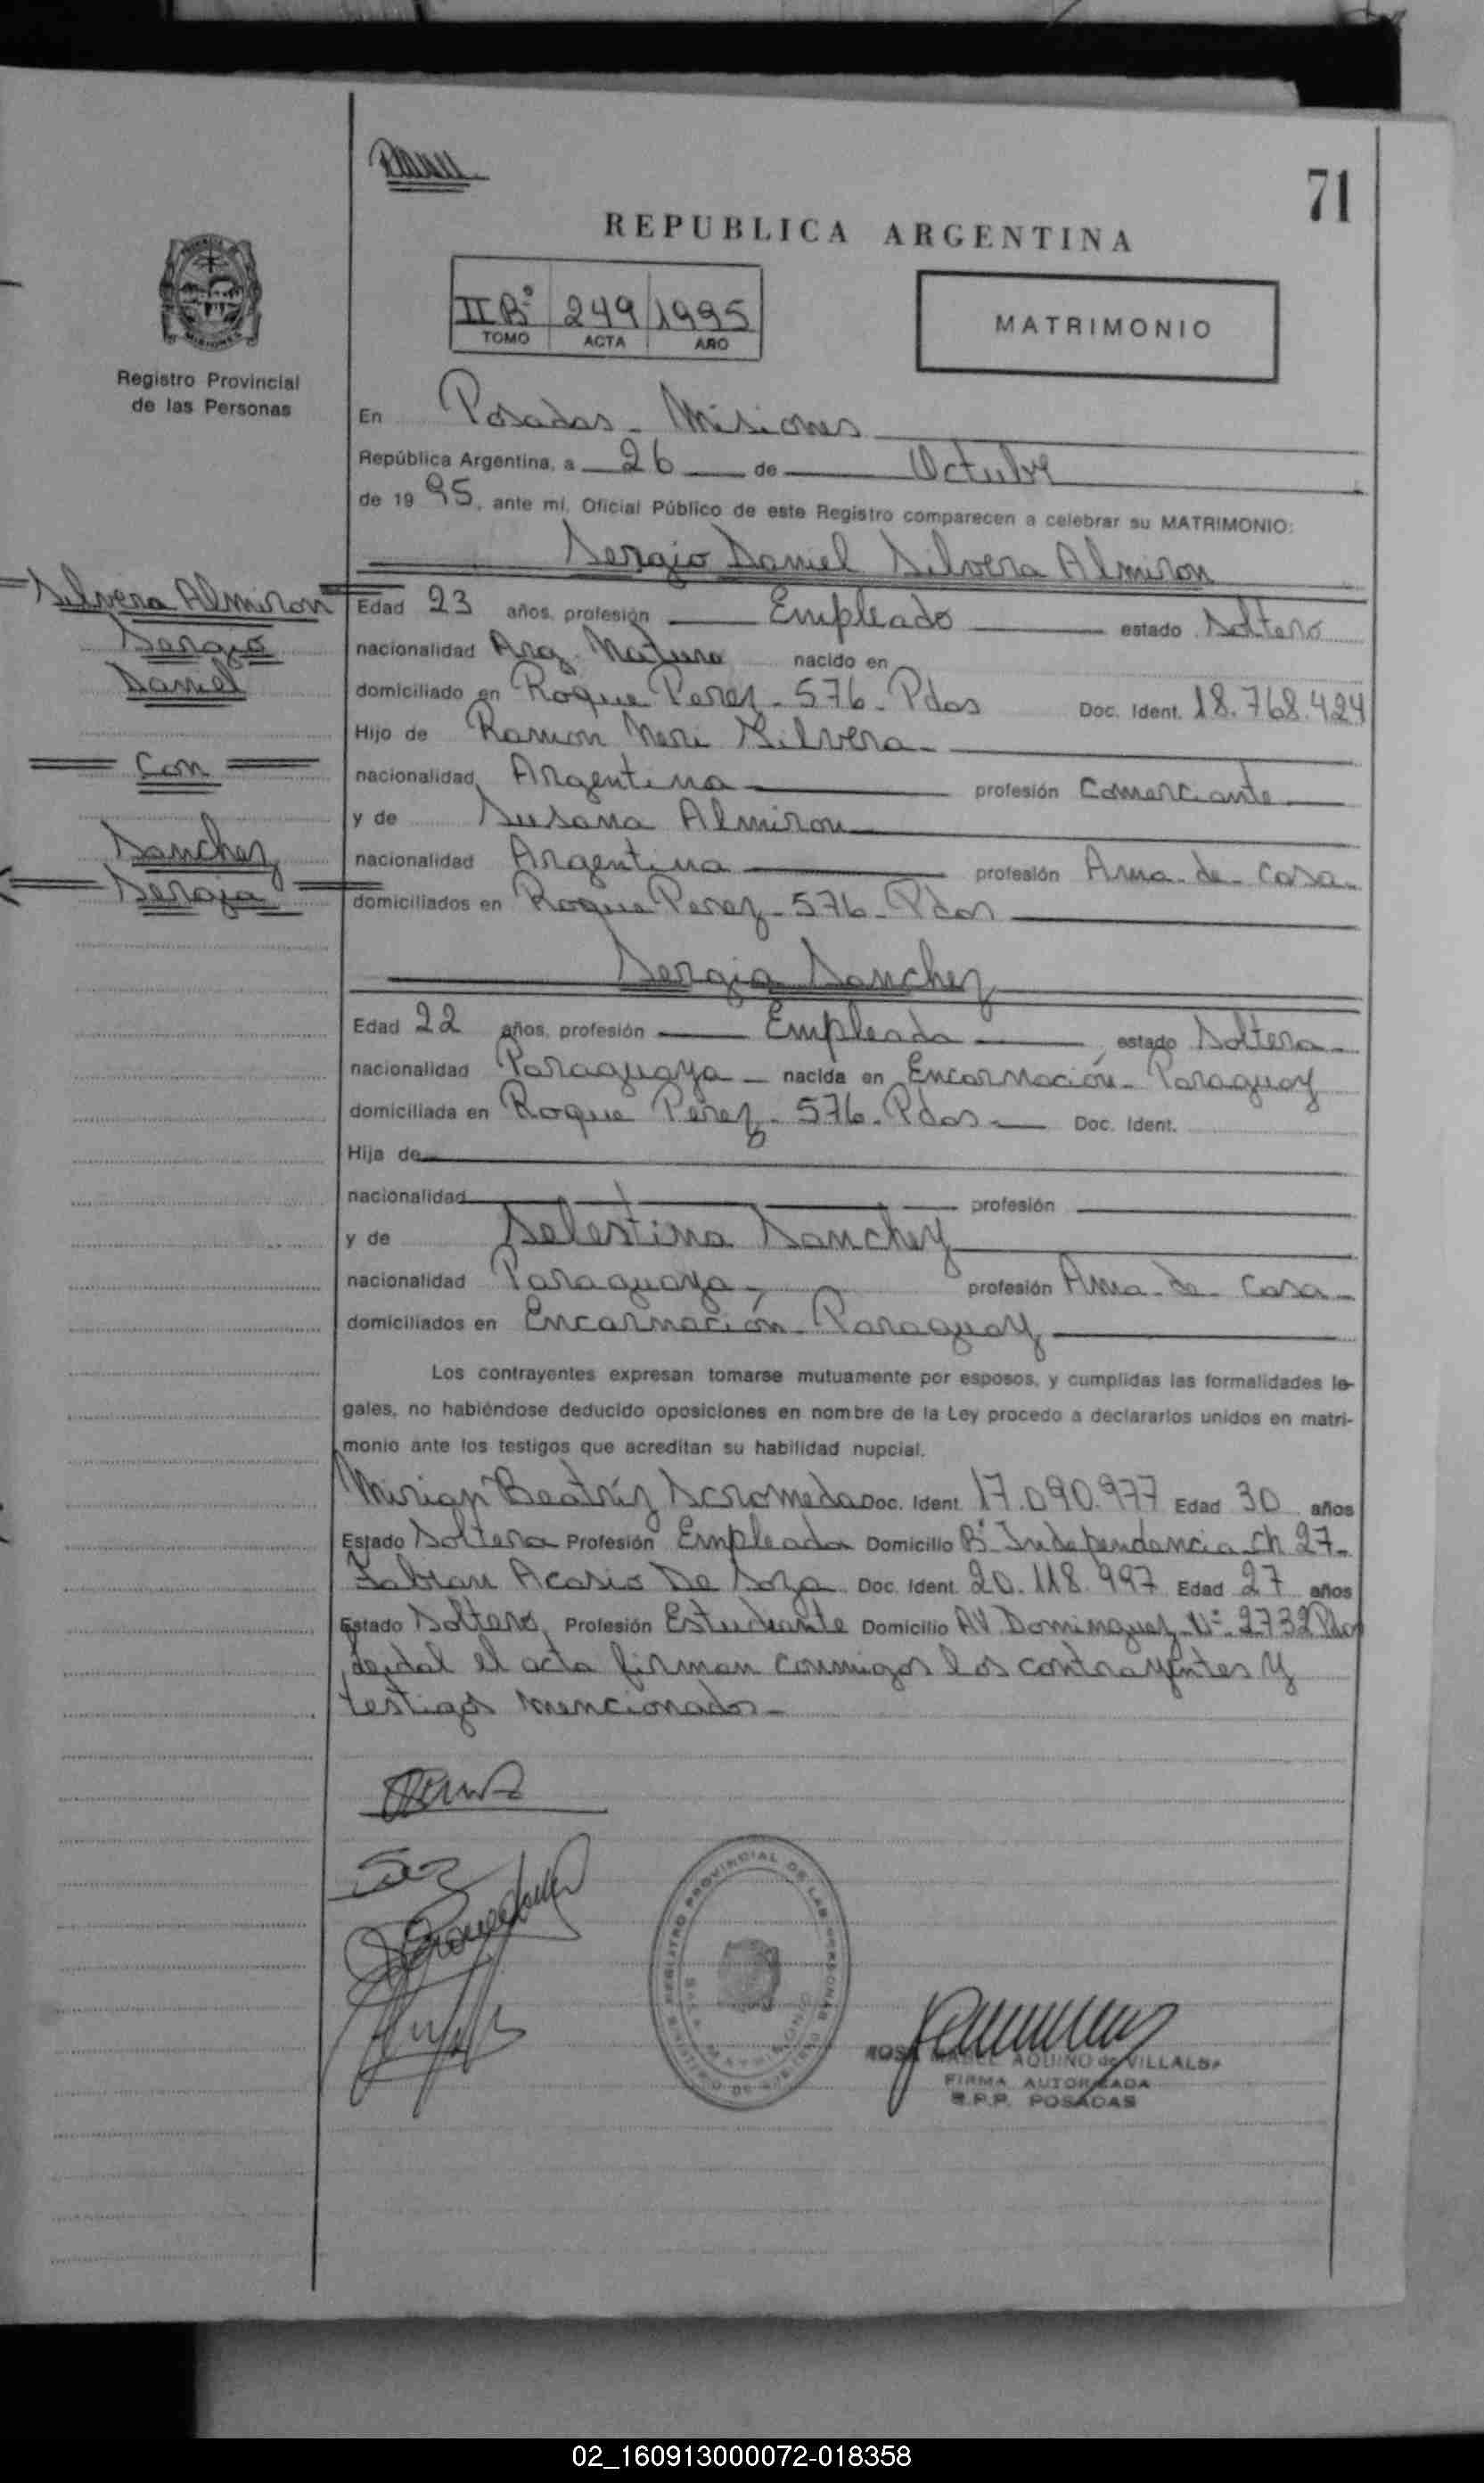 71
REPUBLICA ARGENTINA
IIBº 249 1995
TOMO ACTA AÑO
MATRIMONIO
Registro Provincial
de las Personas
En Posadas - Misiones
República Argentina, a 26 de Octubre
de 1995, ante mí, Oficial Público de este Registro comparecen a celebrar su MATRIMONIO:
Sergio Daniel Silvera Almiron
Silvera Almiron
Sergio
Daniel
Con
Sanchez
Sergia
Edad 23 años, profesión Empleado estado Soltero
nacionalidad Arg. nacido en
domiciliado en Roque Perez - 576 - Pdas Doc. Ident. 18.768.424
Hijo de Ramon Neri Silvera -
nacionalidad Argentina profesión Comerciante
y de Susana Almiron
nacionalidad Argentina profesión Ama - de - Casa -
domiciliados en Roque Perez - 576 - Pdas
Sergia Sanchez
Edad 22 años, profesión Empleada estado Soltera -
nacionalidad Paraguaya - nacida en Encarnación - Paraguay
domiciliada en Roque Perez - 576 - Pdas - Doc. Ident.
Hija de
nacionalidad profesión
y de Selestina Sanchez
nacionalidad Paraguaya - profesión Ama - de - Casa -
domiciliados en Encarnación - Paraguay
Los contrayentes expresan tomarse mutuamente por esposos, y cumplidas las formalidades le-
gales, no habiéndose deducido oposiciones en nombre de la Ley procedo a declararlos unidos en matri-
monio ante los testigos que acreditan su habilidad nupcial.
Mirian Beatríz Scromeda Doc. Ident. 17.090.977 Edad 30 años
Estado Soltera Profesión Empleada Domicilio Bº Independencia - Ch 27 -
Fabian Acasio De Soza Doc. Ident. 20.118.997 Edad 27 años
Estado Soltero, Profesión Estudiante Domicilio AV. Dominguez - Nº 2732 Pdas
el acta firman conmigos los contrayentes y
testigos mencionados -
REGISTRO PROVINCIAL DE LAS PERSONAS
ROSA MABEL AQUINO de VILLALBA
FIRMA AUTORIZADA
R.P.P. POSADAS
02_160913000072-018358